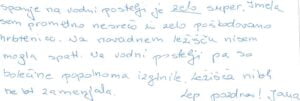 spanje na vodni postelji je zelo super. Imela
sem prometno nesrečo in zelo poškodovano
hrbtenico. Na navadnem ležišču nisem
mogla spati. Na vodni postelji pa so
bolečine popolnoma izginile. Ležišča nikoli
ne bi zamenjala. Lep pozdrav! Jana